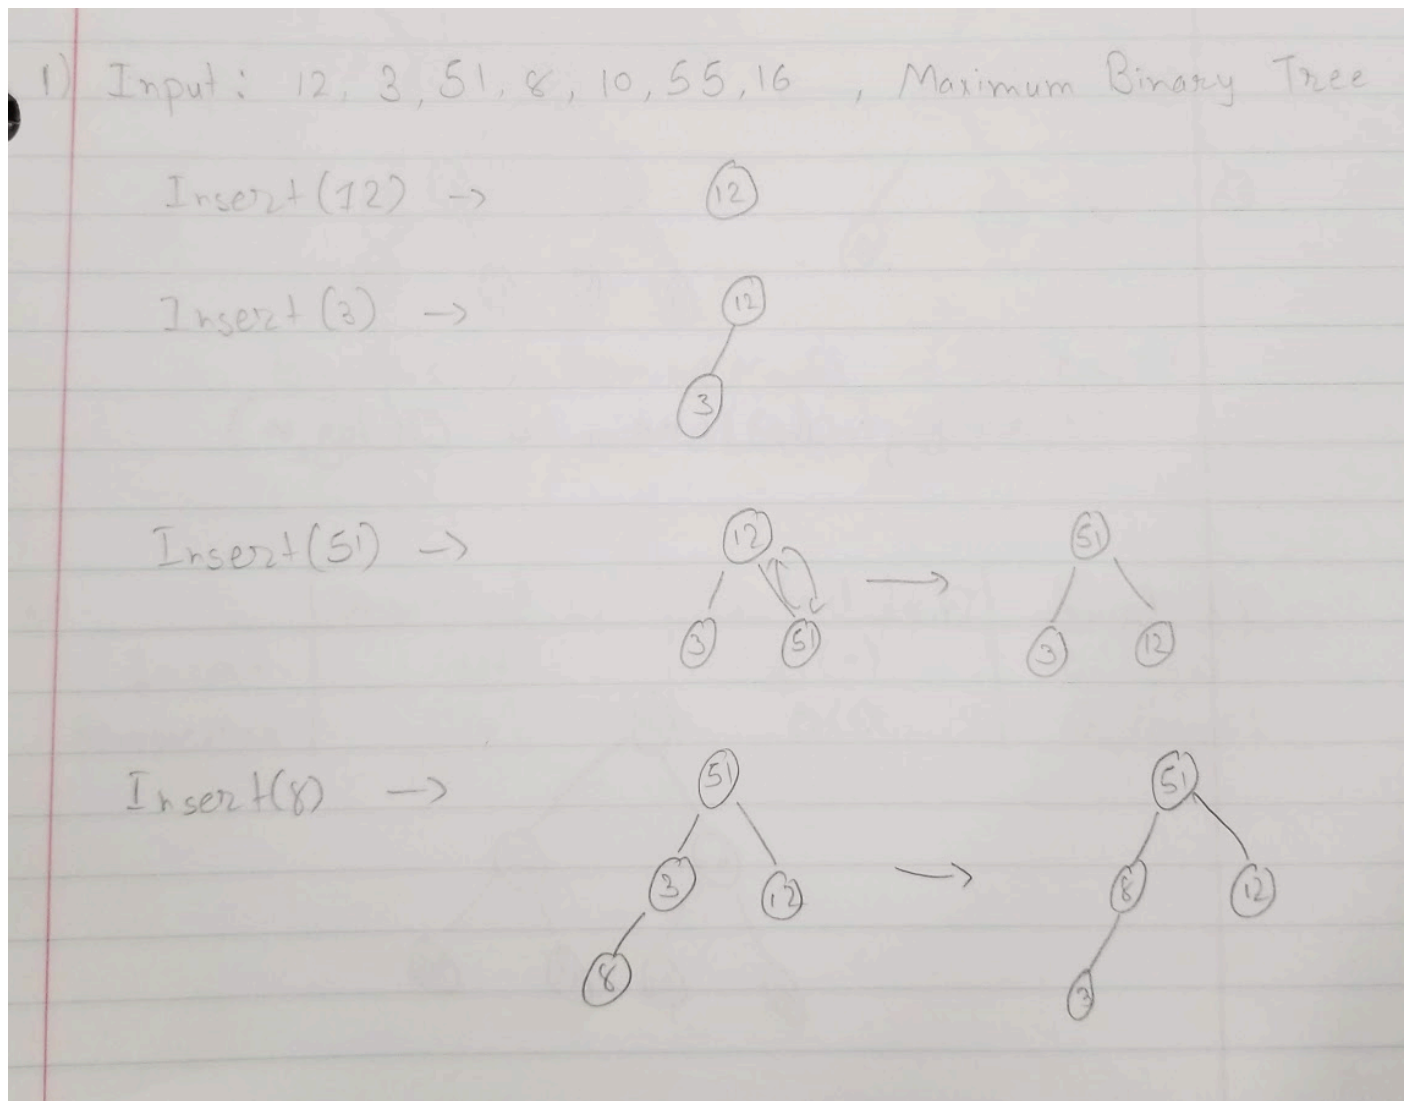 1) Input: 12, 3, 51, 8, 10, 55, 16 , Maximum Binary Tree
Insert(12) → 12
Insert(3) → 12
3
Insert(51) → 12 → 51
3 51 3 12
Insert(8) → 51 51
3 12 → 8 12
8 3